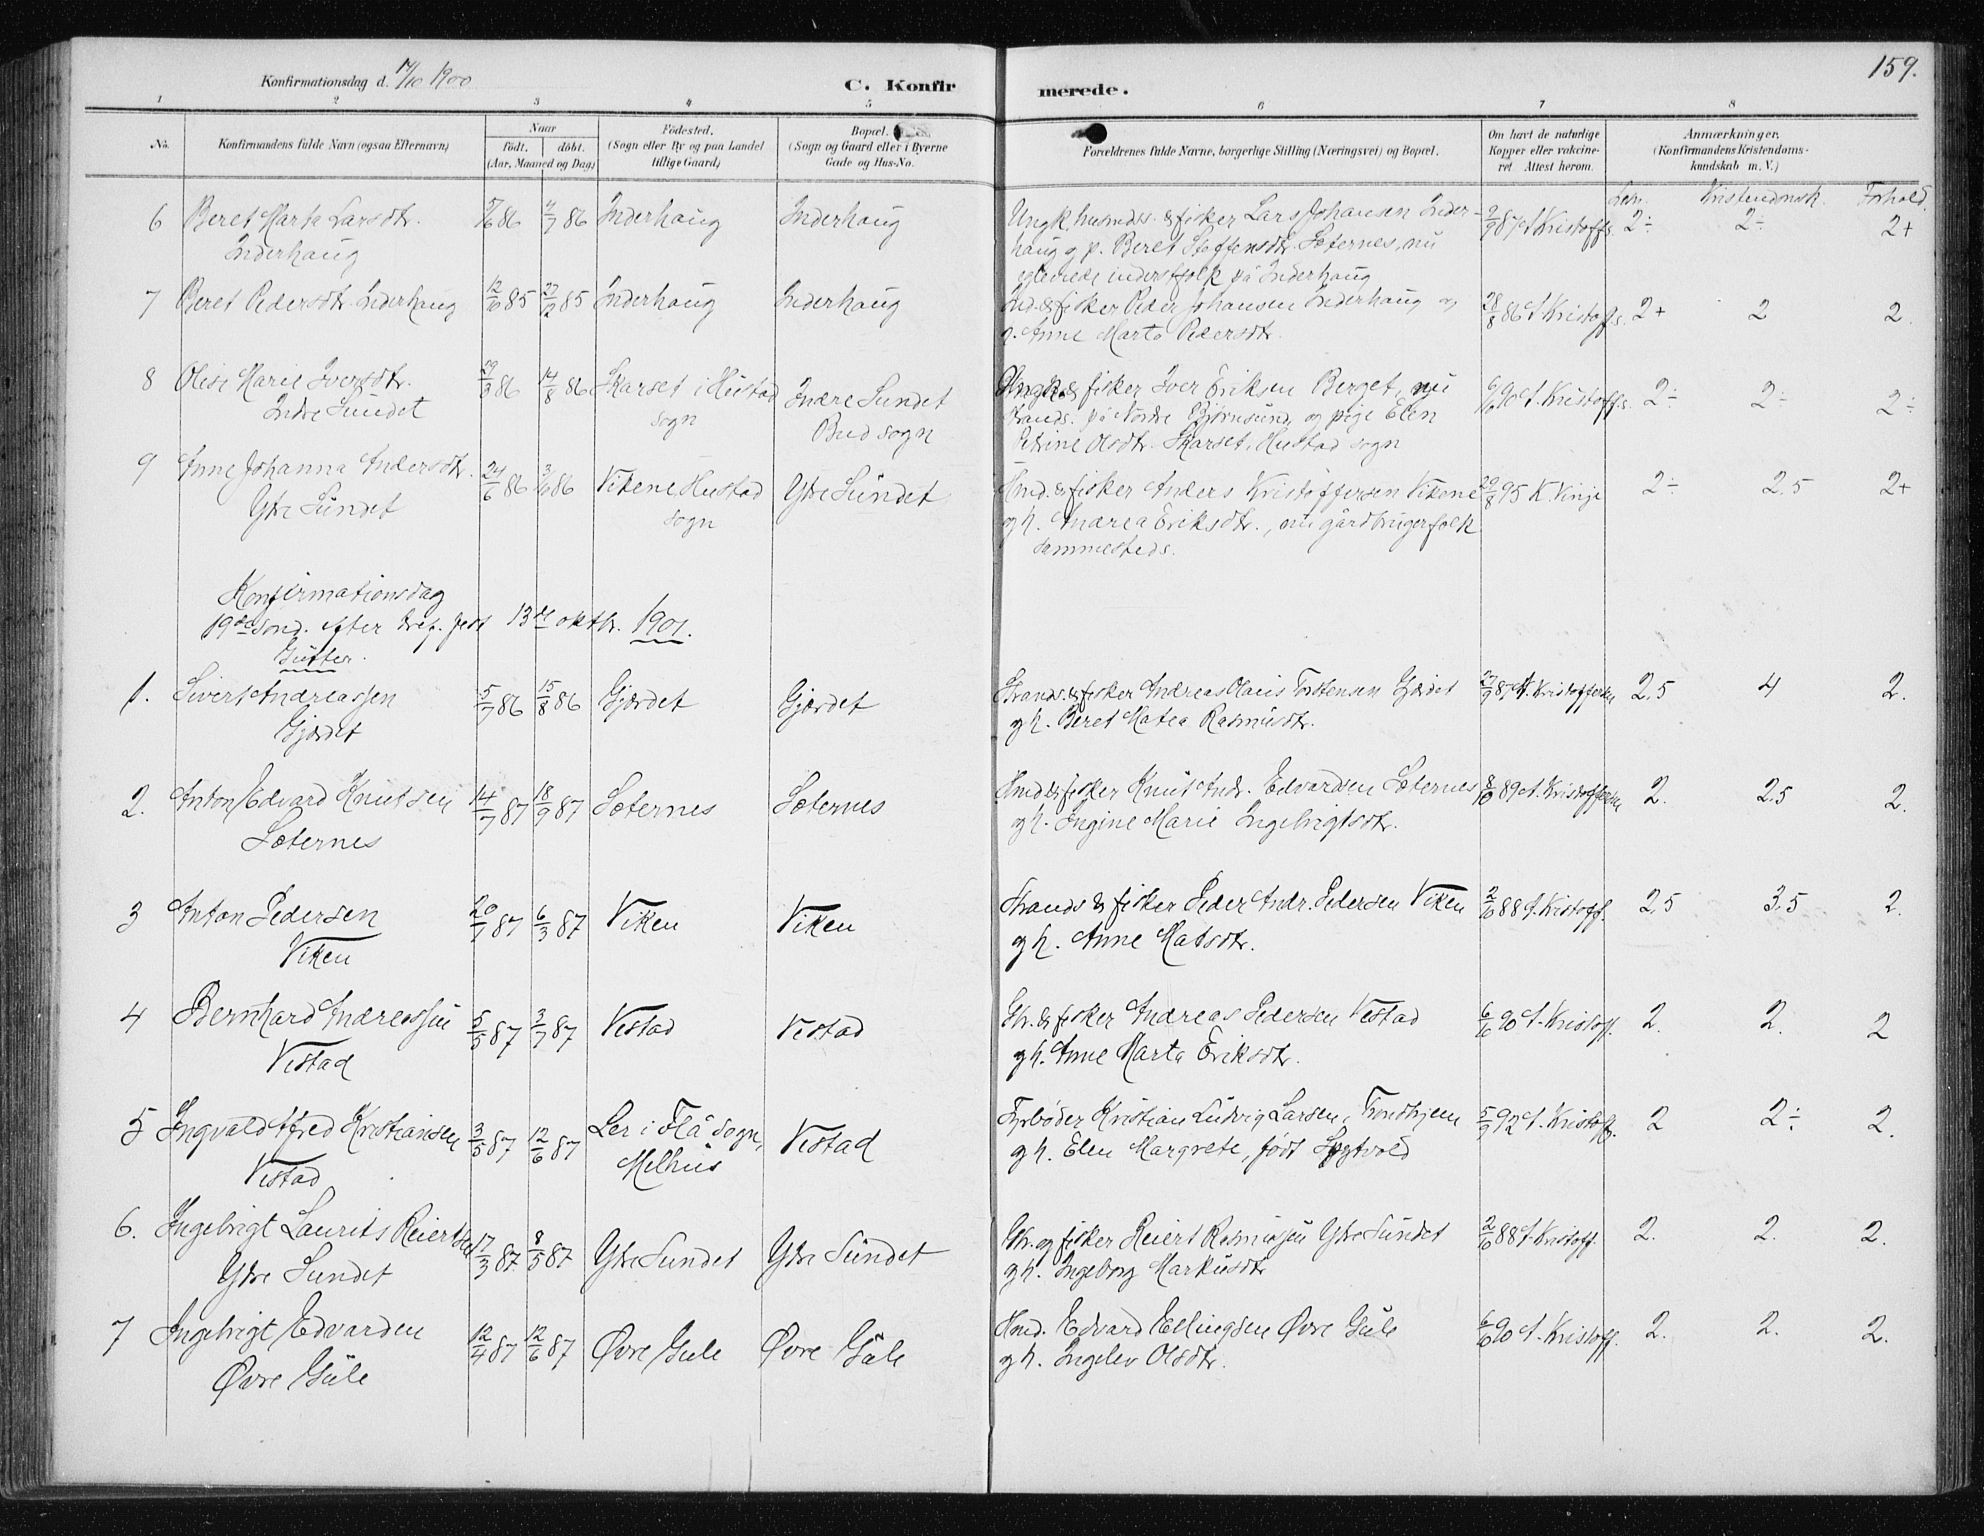 159.
Konfirmationsdag d. 14/10 1900
C. Konfirmerede.
1 2 3 4 5 6 7 8
No. Konfirmandens fulde Navn (ogsaa Efternavn) Naar født. døbt. (Aar, Maaned og Dag) Födested. (Sogn eller By og paa Landet tillige Gaard) Bopæl. (Sogn og Gaard eller i Byerne Gade og Hus-No. Forældrenes fulde Navne, borgerlige Stilling (Næringsvei) og Bopæl. Om havt de naturlige Kopper eller vakcineret Attest herom. Anmærkninger. (Konfirmandens Kristendomskundskab m. V.)
Kristendomsk. Forhold.
6 Beret Marta Larsdtr. 86 86 Inderhaug Inderhaug Ungk. husmdss. & fisker Lars Johansen Inder- 87 A Kristoffs. 2÷ 2÷ 2+
Inderhaug haug g p. Beret Steffensdtr. Sæternes, nu
indersfolk på Inderhaug
7 Beret Pedersdtr. Inderhaug 12/10 85 27/12 85 Inderhaug Inderhaug Ind. & fisker Peder Johansen Inderhaug og 28/8 86 A Kristoffs. 2+ 2 2
h. Anne Marta Pedersdtr.
8 Olise Marie Iversdtr. 29/3 86 14/8 86 Skarset i Hustad Indre Sundet Ungk. & fisker Iver Eriksen Berget, nu 6/10 90 A. Kristoffs. 2÷ 2÷ 2÷
Indre Sundet sogn Bud sogn strands. på Nordre Bjørnsund, og pige Elen
Petrine Olsdtr. Skarset, Hustad sogn
9 Anne Johanna Andersdtr. 24/6 86 3/10 86 Vikene Hustad Ytre Sundet Hmd. & fisker Anders Kristoffersen Vikene 29/8 95 K. Vinje 2÷ 2,5 2+
Ytre Sundet sogn g h. Andrea Eriksdtr., nu gårdbrugerfolk
sammesteds.
Konfirmationsdag
19de sønd. efter tref. fest 13de oktbr. 1901.
Gutter.
1. Sivert Andreassen 5/7 86 15/8 86 Gjærdet Gjærdet Strands. & fisker Andreas Olaus Torstensen Gjærdet 27/9 87 A. Kristoffersen 2,5 4 2.
Gjærdet g h. Beret Matea Rasmusdtr.
2. Anton Edvard Knutsen 14/7 87 18/9 87 Sæternes Sæternes Hmd & fisker Knut Andr. Edvardsen Sæternes 8/10 89 A. Kristoffersen 2. 2,5 2.
Sæternes g h. Ingine Marie Ingebrigtsdtr.
3 Anton Pedersen 20/1 87 6/3 87 Viken Viken Strands & fisker Peder Andr. Pedersen Viken 2/10 88 A. Kristoff. 2,5 3,5 2.
Viken g h. Anne Matsdtr.
4 Bernhard Andreassen 5/5 87 3/7 87 Vestad Vestad Str. & fisker Andreas Pedersen Vestad 6/10 90 A. Kristoff. 2. 2. 2
Vestad g h. Anne Marta Eriksdtr.
5 Ingvald Alfred Kristiansen 3/5 87 12/6 87 Ler i Flå sogn, Vestad Fyrbøder Kristian Ludvig Larsen, Trondhjem 5/9 92 A. Kristoff. 2 2÷ 2.
Vestad Melhus g h. Elen Margrete, født
6. Ingebrigt Laurits Reiertsen 17/3 87 8/5 87 Ytre Sundet Ytre Sundet Str. og fisker Reiert Rasmussen Ytre Sundet 2/10 88 A. Kristoff. 2. 2. 2.
Ytre Sundet g h. Ingeborg Markusdtr
7 Ingebrigt Edvardsen 12/4 87 12/6 87 Øvre Gule Øvre Gule Hmd. Edvard Ellingsen Øvre Gule 6/10 90 A. Kristoff. 2. 2. 2.
Øvre Gule g h. Ingelev Olsdtr.